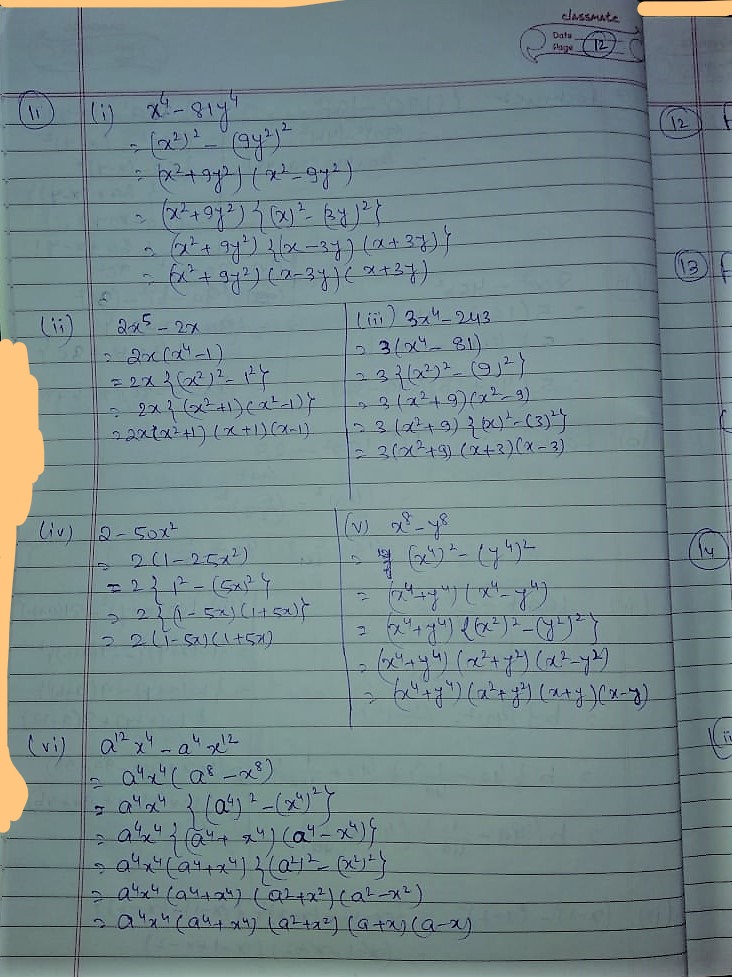 classmate
Date
Page 12
(11) (i) x⁴ - 81y⁴
= (x²)² - (9y²)²
= (x²+9y²) (x² - 9y²)
= (x²+9y²) {(x)² - (3y)²}
= (x² + 9y²) {(x - 3y) (x + 3y)}
= (x² + 9y²) (x - 3y) (x + 3y)
(ii) 2x⁵ - 2x
= 2x(x⁴ - 1)
= 2x {(x²)² - 1²}
= 2x {(x²+1) (x² - 1)}
= 2x(x²+1) (x+1) (x-1)
(iii) 3x⁴ - 243
= 3(x⁴ - 81)
= 3 {(x²)² - (9)²}
= 3 (x² + 9) (x² - 9)
= 3 (x² + 9) {(x)² - (3)²}
= 3(x²+9) (x+3) (x-3)
(iv) 2 - 50x²
= 2(1 - 25x²)
= 2 { 1² - (5x)² }
= 2 {(1 - 5x) (1 + 5x)}
= 2(1 - 5x) (1 + 5x)
(v) x⁸ - y⁸
= (x⁴)² - (y⁴)²
= (x⁴+y⁴) (x⁴ - y⁴)
= (x⁴+y⁴) {(x²)² - (y²)²}
= (x⁴+y⁴) (x²+y²) (x² - y²)
= (x⁴+y⁴) (x²+y²) (x+y) (x-y)
(vi) a¹² x⁴ - a⁴ x¹²
= a⁴x⁴ ( a⁸ - x⁸)
= a⁴x⁴ {(a⁴)² - (x⁴)²}
= a⁴x⁴ {(a⁴ + x⁴) (a⁴ - x⁴)}
= a⁴x⁴ (a⁴+x⁴) {(a²)² - (x²)²}
= a⁴x⁴ (a⁴+x⁴) (a²+x²) (a² - x²)
= a⁴x⁴ (a⁴+x⁴) (a²+x²) (a+x) (a-x)
(12)
(13)
(14)